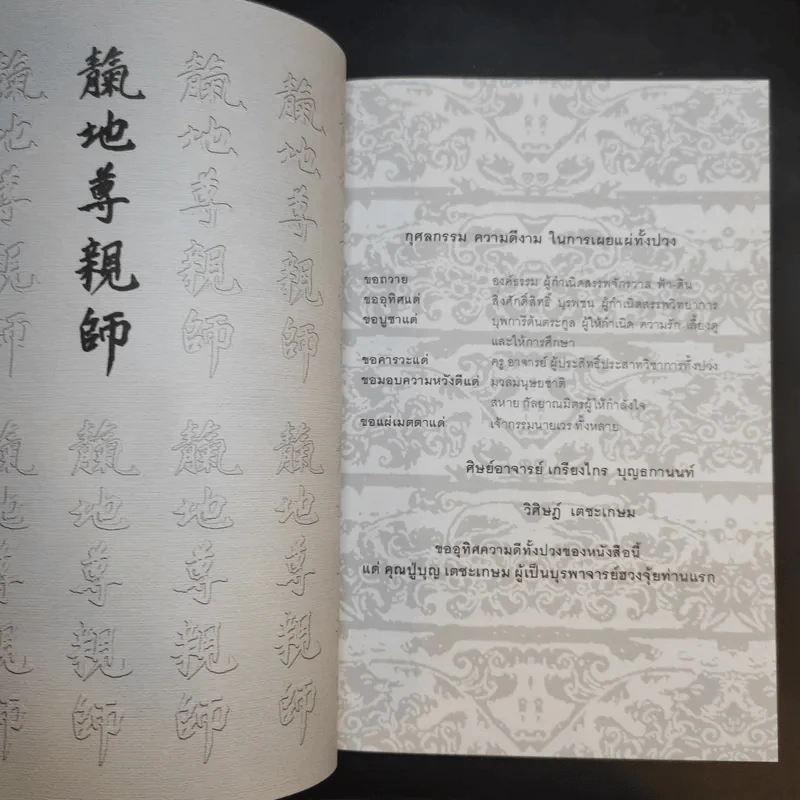 靝地尊親師
靝地尊親師
靝地尊親師
靝地尊親師
靝地尊親師
靝地尊親師
กุศลกรรม ความดีงาม ในการเผยแผ่ทั้งปวง
ขอถวาย องค์ธรรม ผู้กำเนิดสรรพจักรวาล ฟ้า-ดิน
ขออุทิศแด่ สิ่งศักดิ์สิทธิ์ บุรพชน ผู้กำเนิดสรรพวิทยาการ
ขอบูชาแด่ บุพการีต้นตระกูล ผู้ให้กำเนิด ความรัก เลี้ยงดู
และให้การศึกษา
ขอคารวะแด่ ครู อาจารย์ ผู้ประสิทธิ์ประสาทวิชาการทั้งปวง
ขอมอบความหวังดีแด่ มวลมนุษยชาติ
สหาย กัลยาณมิตรผู้ให้กำลังใจ
ขอแผ่เมตตาแด่ เจ้ากรรมนายเวร ทั้งหลาย
ศิษย์อาจารย์ เกรียงไกร บุญธกานนท์
วิศิษฎ์ เตชะเกษม
ขออุทิศความดีทั้งปวงของหนังสือนี้
แด่ คุณปู่บุญ เตชะเกษม ผู้เป็นบุรพาจารย์ฮวงจุ้ยท่านแรก